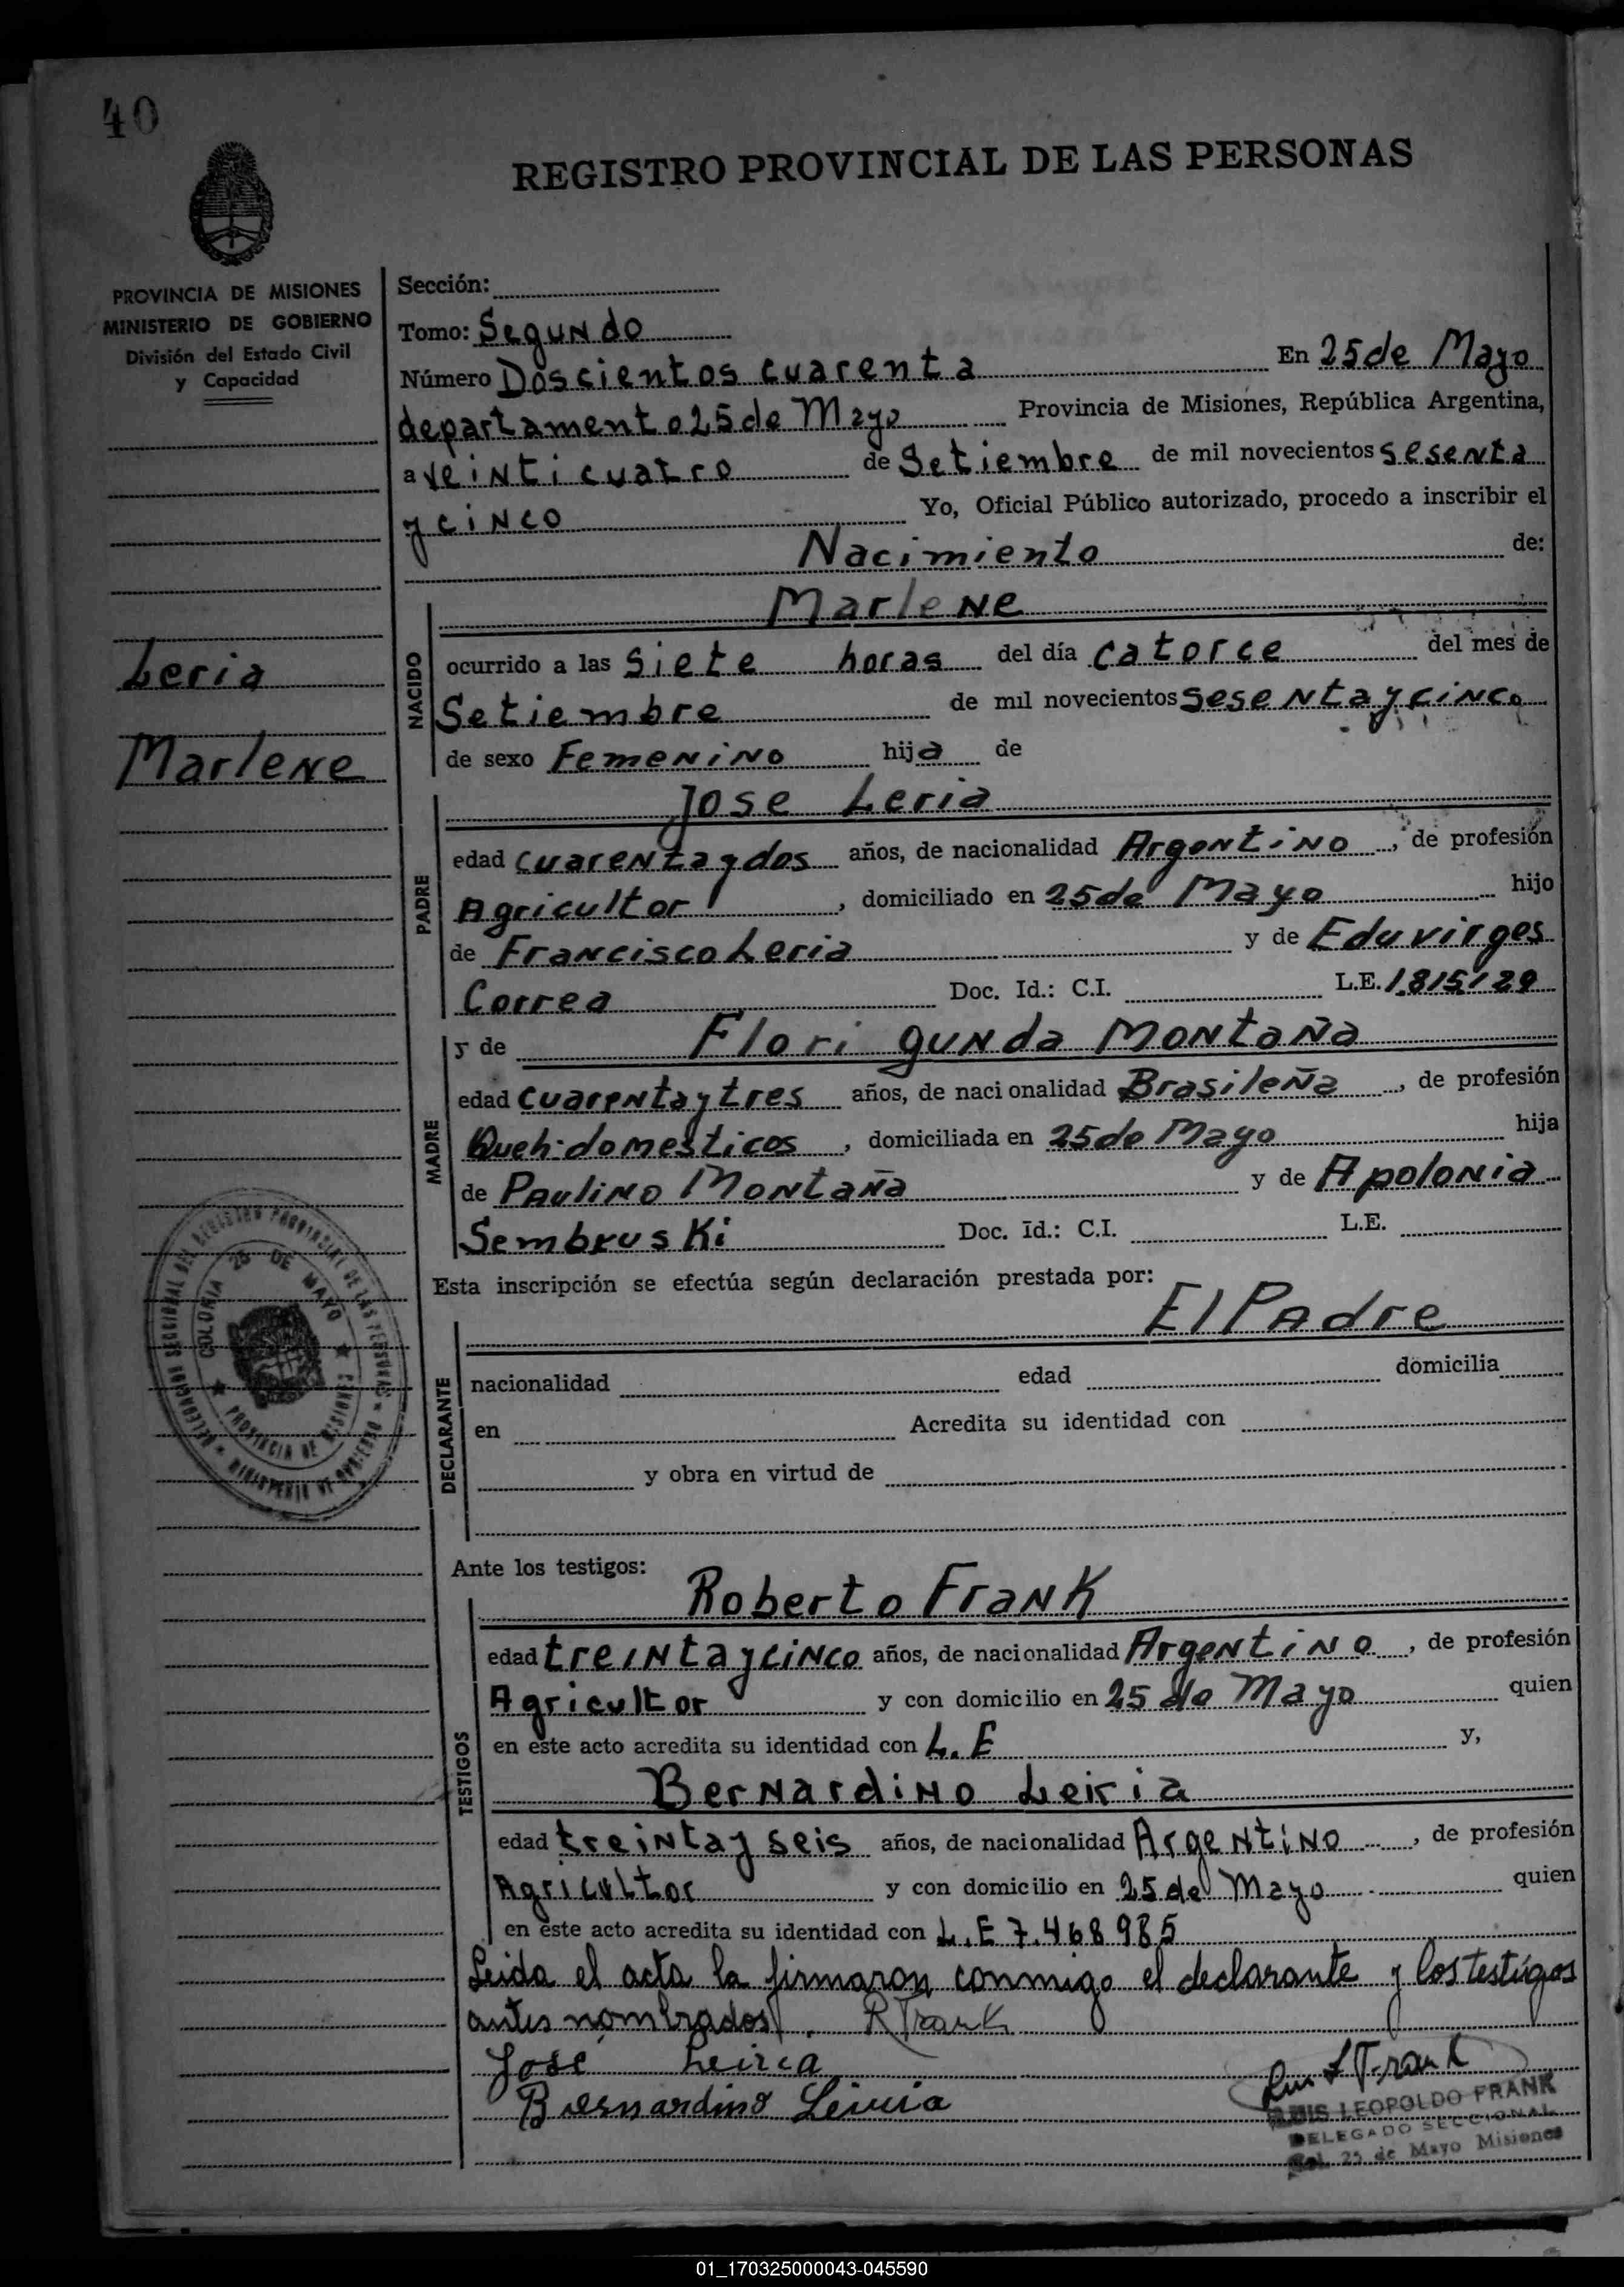 40
REGISTRO PROVINCIAL DE LAS PERSONAS
PROVINCIA DE MISIONES
MINISTERIO DE GOBIERNO
División del Estado Civil
y Capacidad
Sección:
Tomo: Segundo
Número Doscientos cuarenta En 25 de Mayo
departamento 25 de Mayo Provincia de Misiones, República Argentina,
a veinticuatro de Setiembre de mil novecientos sesenta
y cinco Yo, Oficial Público autorizado, procedo a inscribir el
Nacimiento de:
Leria
Marlene
NACIDO
Marlene
ocurrido a las siete horas del día catorce del mes de
Setiembre de mil novecientos sesenta y cinco
de sexo Femenino hija de
PADRE
Jose Leria
edad cuarenta y dos años, de nacionalidad Argentino, de profesión
Agricultor, domiciliado en 25 de Mayo hijo
de Francisco Leria y de Eduvirges
Correa Doc. Id.: C.I. L.E. 1.815.129
MADRE
y de Florigunda Montaña
edad cuarenta y tres años, de nacionalidad Brasileña, de profesión
Queh. domesticos, domiciliada en 25 de Mayo hija
de Paulino Montaña y de Apolonia
Sembruski Doc. Id.: C.I. L.E.
Esta inscripción se efectúa según declaración prestada por:
DECLARANTE
El Padre
nacionalidad edad domicilia
en Acredita su identidad con
y obra en virtud de
DELEGACION SECCIONAL DEL REGISTRO PROVINCIAL DE LAS PERSONAS
COLONIA 25 DE MAYO
PROVINCIA DE MISIONES
MINISTERIO DE GOBIERNO
Ante los testigos:
TESTIGOS
Roberto Frank
edad treinta y cinco años, de nacionalidad Argentino, de profesión
Agricultor y con domicilio en 25 de Mayo quien
en este acto acredita su identidad con L.E y,
Bernardino Leiria
edad treinta y seis años, de nacionalidad Argentino, de profesión
Agricultor y con domicilio en 25 de Mayo quien
en este acto acredita su identidad con L.E 7.468985
Leida el acta la firmaron conmigo el declarante y los testigos
antes nombrados. R Frank
José Leiria
Bernardino Leiria
Luis L Frank
LUIS LEOPOLDO FRANK
DELEGADO SECCIONAL
Col. 25 de Mayo Misiones
01_170325000043-045590